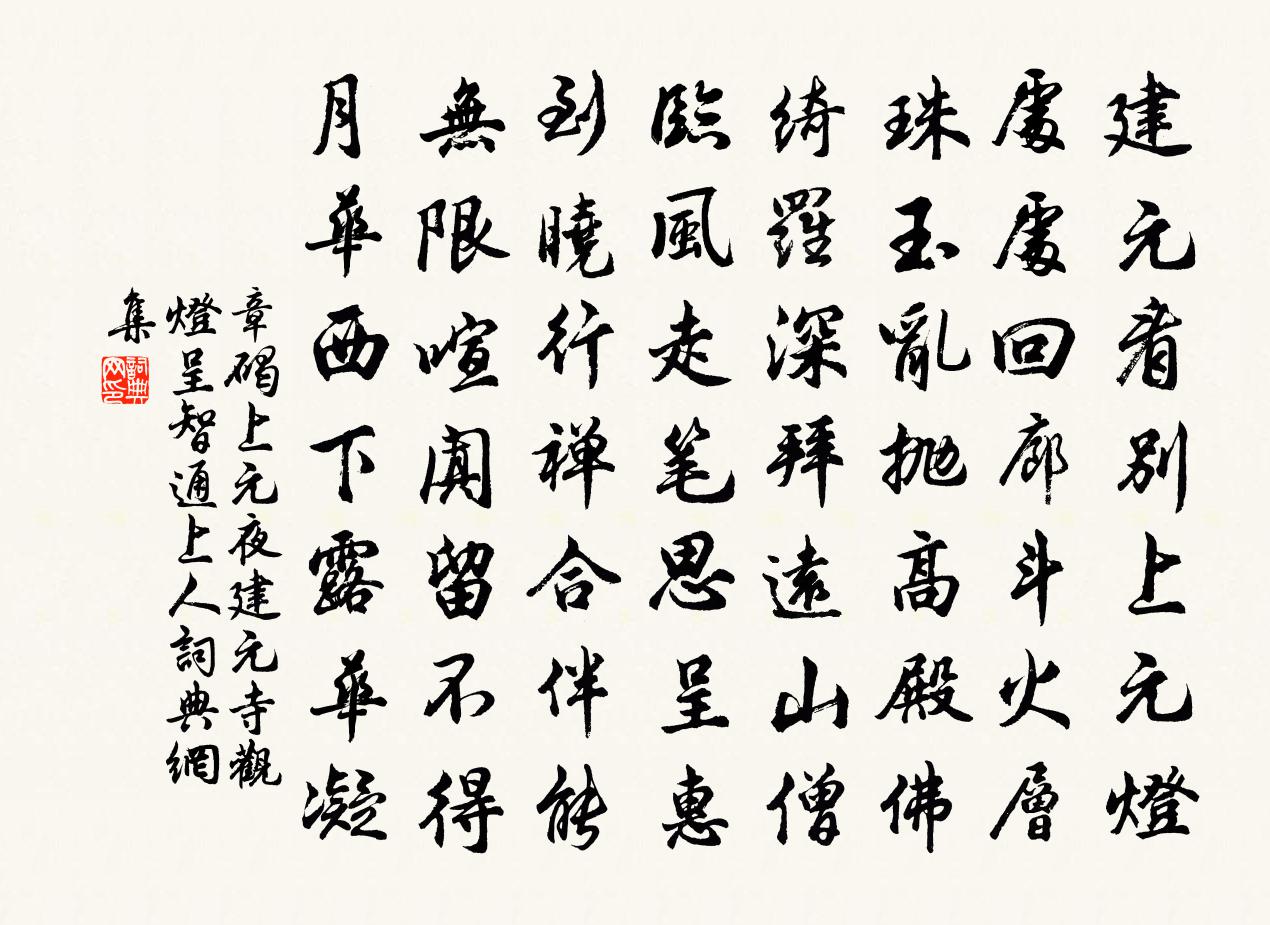 建元看別上元燈
處處回廊斗火層
珠玉亂抛高殿佛
綺羅深拜遠山僧
臨風走笔思呈惠
到曉行禅合伴能
無限喧闐留不得
月華西下露華凝
章碣上元夜建元寺觀
燈呈智通上人詞典網
集
詞典
网印